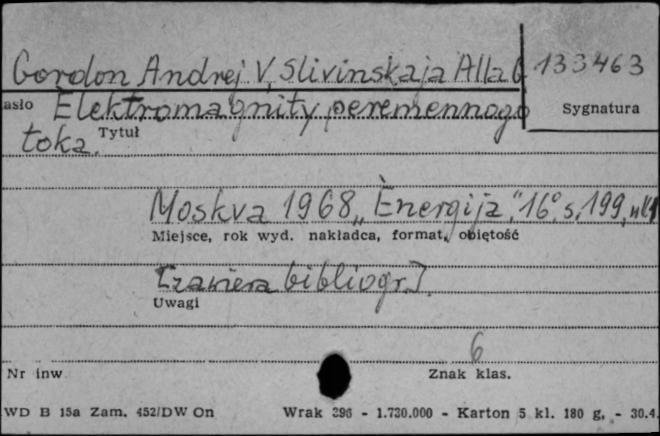 Gordon Andrej V, Slivinskaja Alla G 133463
asło Elektromagnity peremennogo Sygnatura
toka. Tytuł
Moskva 1968 „Ènergija." 16°, s. 199,
Miejsce, rok wyd. nakładca, format, objętość
[zawiera bibliogr.].
Uwagi
6
Nr inw. Znak klas.
WD B 15a Zam. 452/DW On Wrak 296 - 1.730.000 - Karton 5 kl. 180 g. - 30.4.